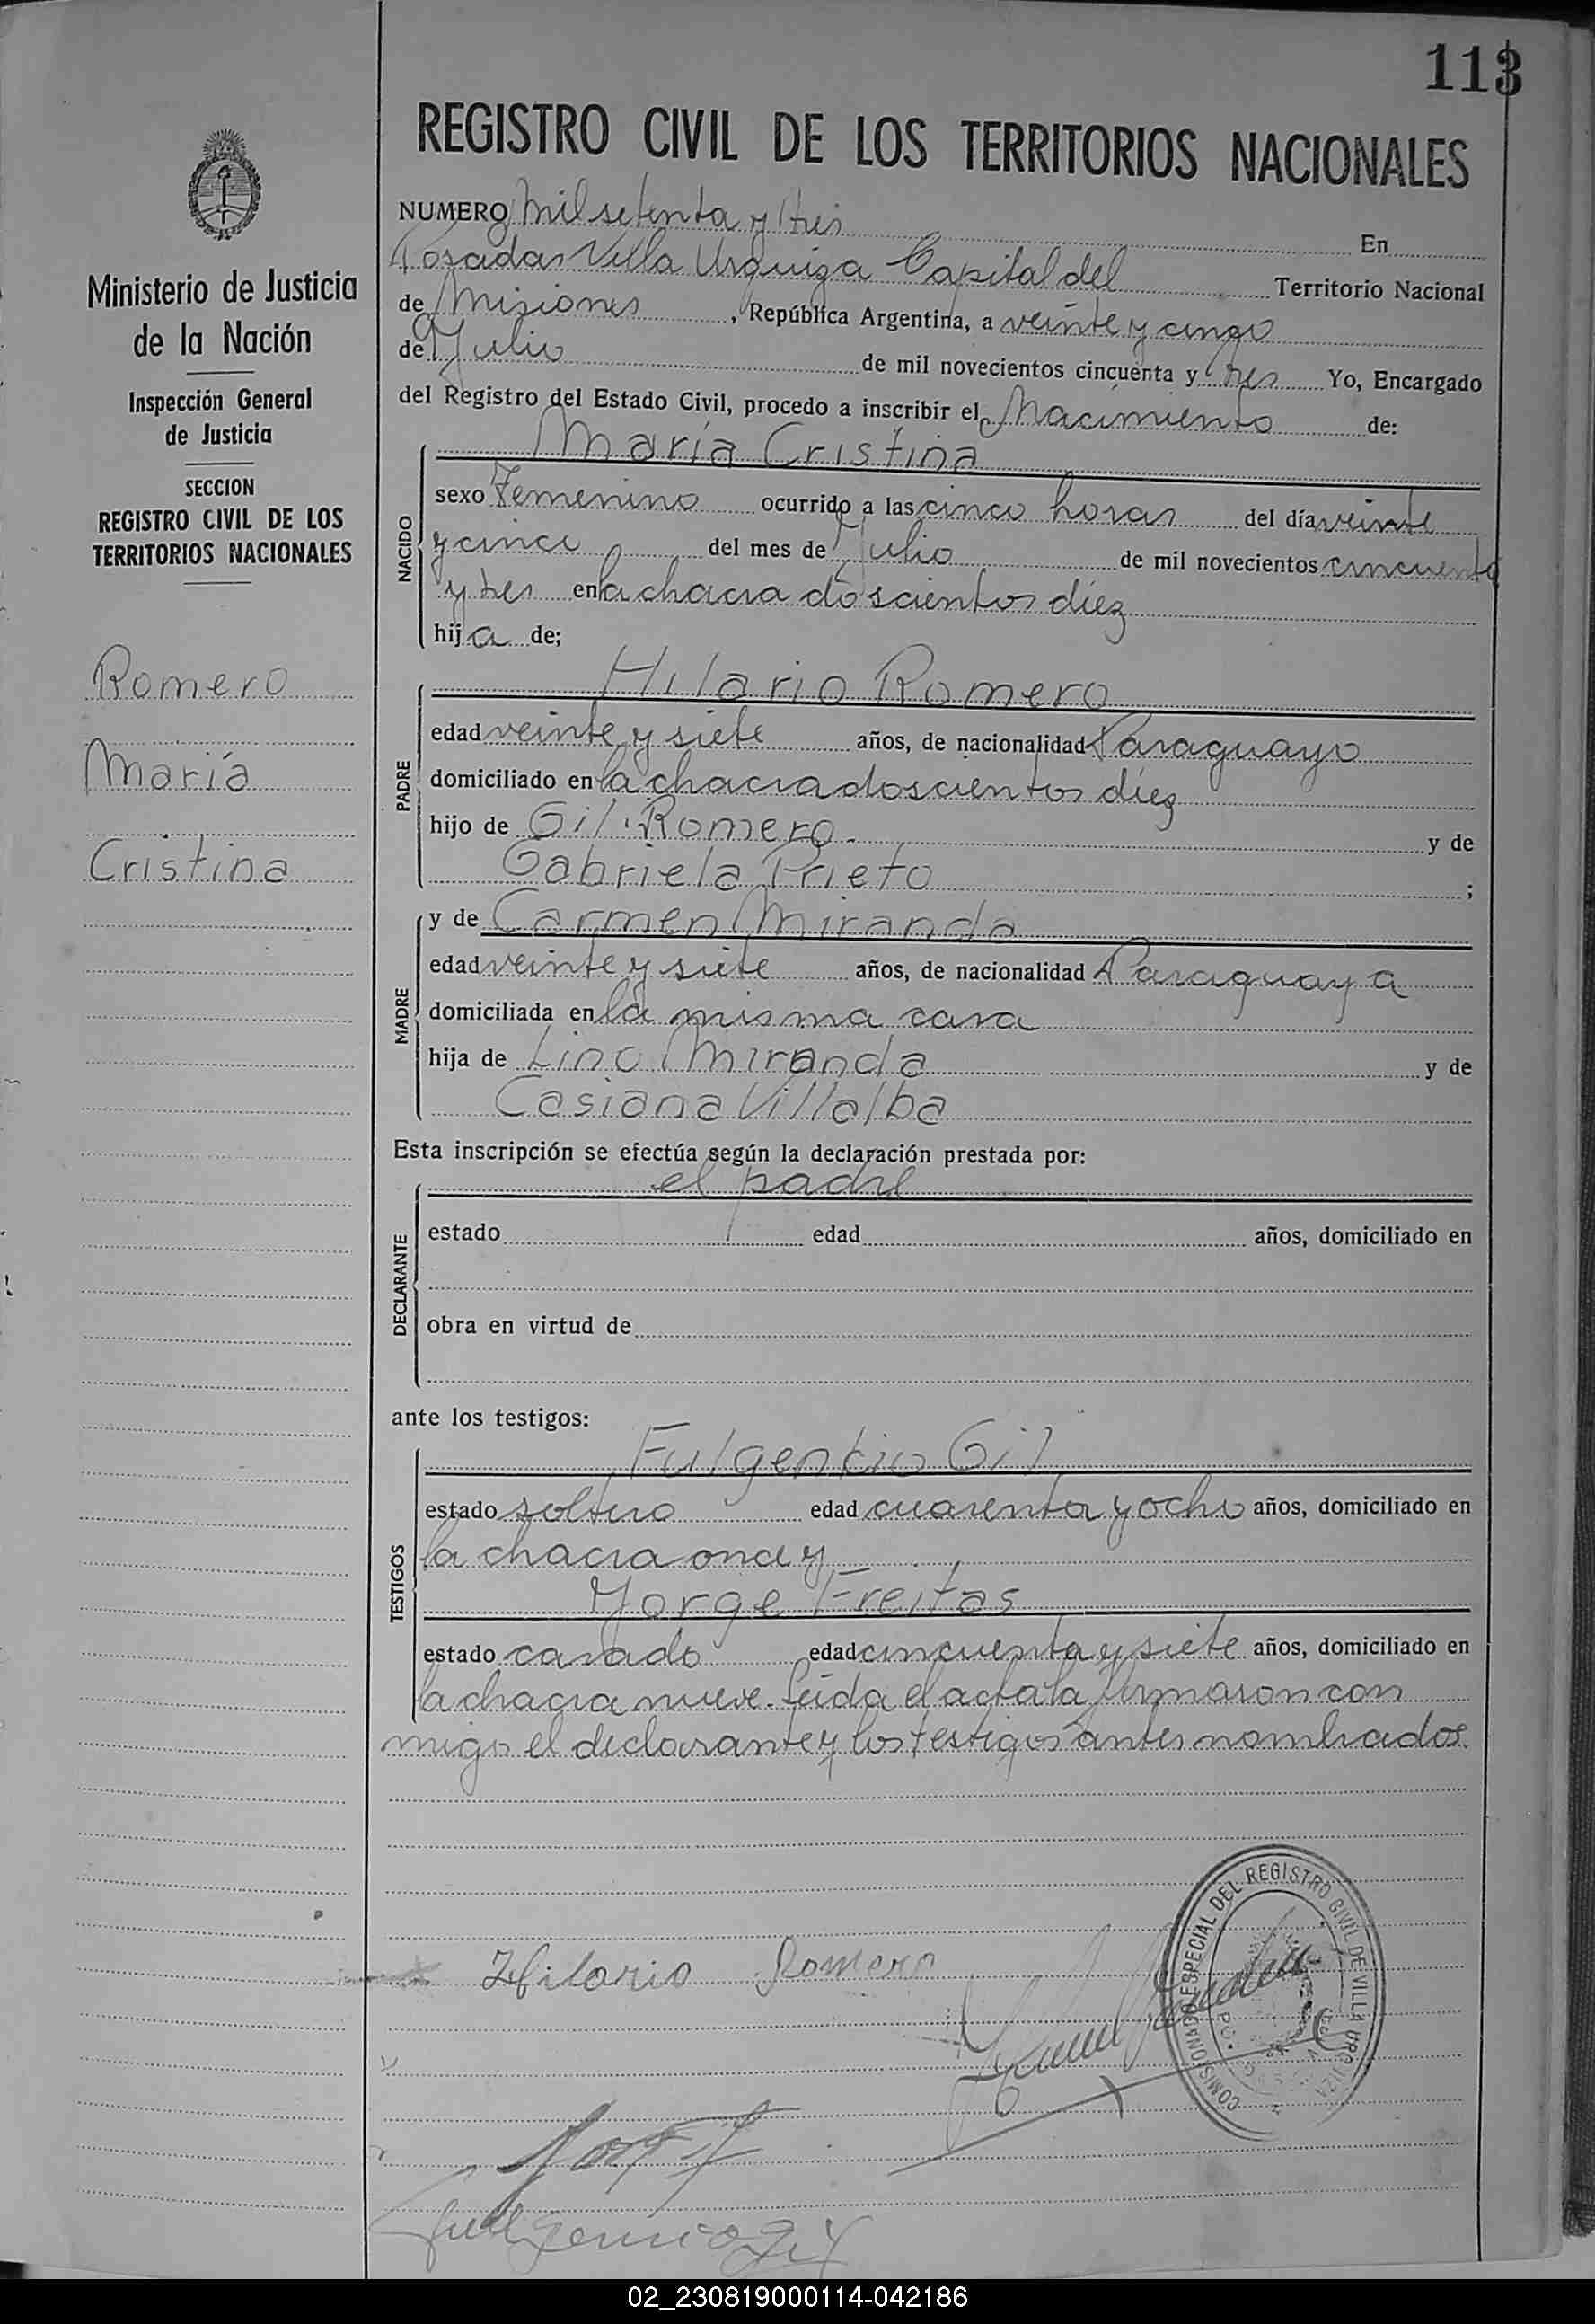 113
REGISTRO CIVIL DE LOS TERRITORIOS NACIONALES
Ministerio de Justicia
de la Nación
Inspección General
de Justicia
SECCION
REGISTRO CIVIL DE LOS
TERRITORIOS NACIONALES
Romero
María
Cristina
NUMERO Mil setenta y tres En
Posadas Villa Urquiza Capital del Territorio Nacional
de Misiones, República Argentina, a veinte y cinco
de Julio de mil novecientos cincuenta y tres Yo, Encargado
del Registro del Estado Civil, procedo a inscribir el Nacimiento de:
NACIDO
María Cristina
sexo Femenino ocurrido a las cinco horas del día veinte
y cinco del mes de Julio de mil novecientos cincuenta
y tres en la chacra doscientos diez
hija de;
PADRE
Hilario Romero
edad veinte y siete años, de nacionalidad Paraguayo
domiciliado en la chacra doscientos diez
hijo de Gil Romero y de
Gabriela Prieto ;
MADRE
y de Carmen Miranda
edad veinte y siete años, de nacionalidad Paraguaya
domiciliada en la misma casa
hija de Lino Miranda y de
Casiana Villalba
Esta inscripción se efectúa según la declaración prestada por:
DECLARANTE
el padre
estado edad años, domiciliado en
obra en virtud de
ante los testigos:
TESTIGOS
Fulgenkio Gil
estado soltero edad cuarenta y ocho años, domiciliado en
la chacra once y
Jorge Freitas
estado casado edad cincuenta y siete años, domiciliado en
la chacra nueve. Leida el acta la firmaron con
migo el declarante y los testigos antes nombrados.
COMISIONADO ESPECIAL DEL REGISTRO CIVIL DE VILLA URQUIZA
Hilario Romero
Fulgencio Gil
02_230819000114-042186